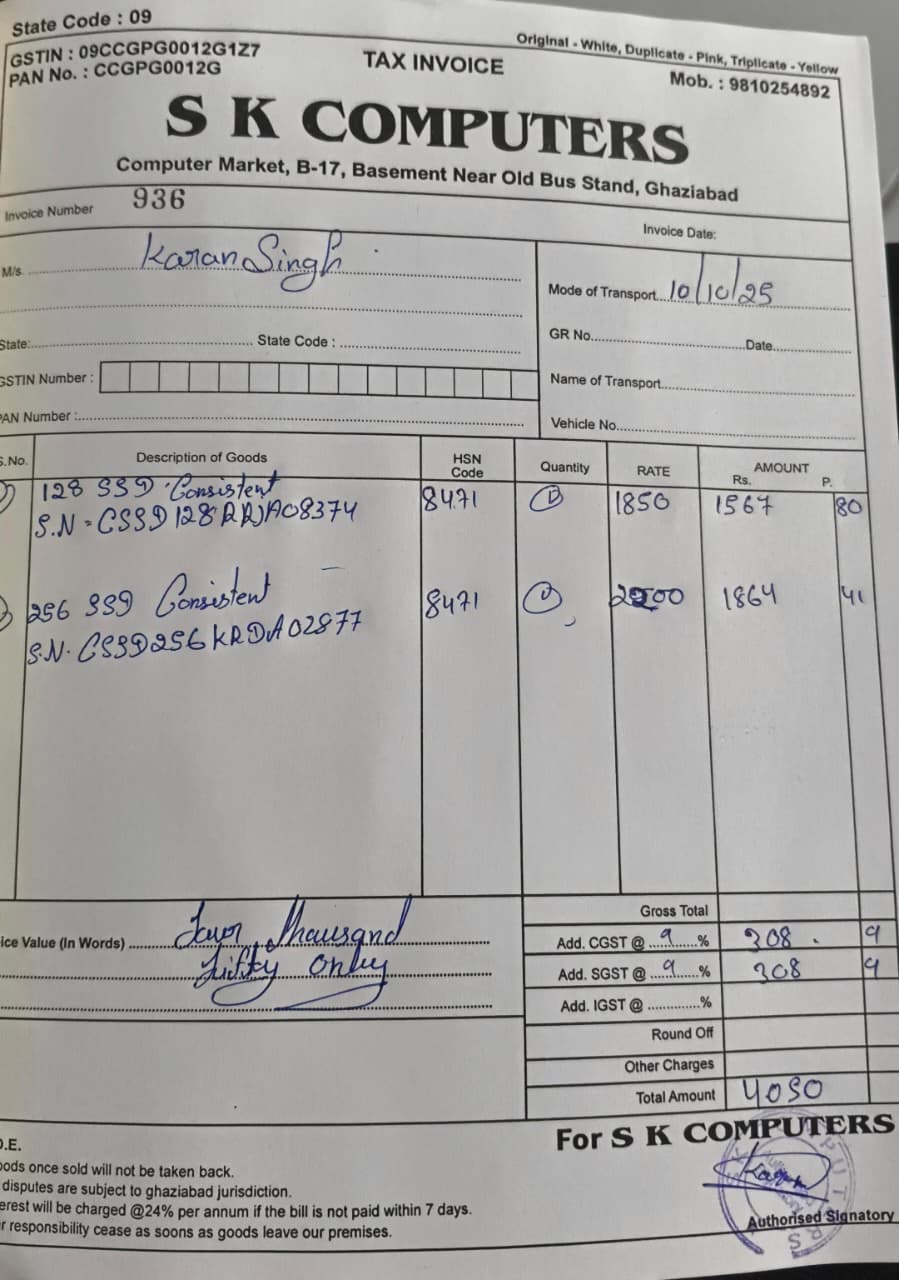 State Code : 09
Original - White, Duplicate - Pink, Triplicate - Yellow
GSTIN : 09CCGPG0012G1Z7
TAX INVOICE
Mob. : 9810254892
PAN No. : CCGPG0012G
S K COMPUTERS
Computer Market, B-17, Basement Near Old Bus Stand, Ghaziabad
Invoice Number 936
Invoice Date:
M/s. Karan Singh
Mode of Transport 10/10/25
GR No. Date
State: State Code :
GSTIN Number :
Name of Transport
PAN Number :
Vehicle No.
S.No. Description of Goods HSN Code Quantity RATE AMOUNT Rs. P.
128 SSD Consistent 8471 1 1850 1567 80
S.N = CSSD128RRJA08374
256 SSD Consistent 8471 2200 1864 41
S.N. CSSD256KRDA02877
Gross Total
ice Value (In Words) Four Thausand
Fifty only
Add. CGST @ 9 % 308 9
Add. SGST @ 9 % 308 9
Add. IGST @ %
Round Off
Other Charges
Total Amount 4050
For S K COMPUTERS
O.E.
oods once sold will not be taken back.
disputes are subject to ghaziabad jurisdiction.
erest will be charged @24% per annum if the bill is not paid within 7 days.
r responsibility cease as soons as goods leave our premises.
Authorised Signatory